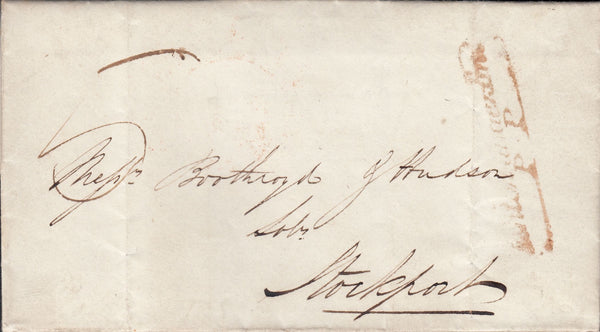 Messrs. Boothroyd & Hudson
Solrs
Stockport